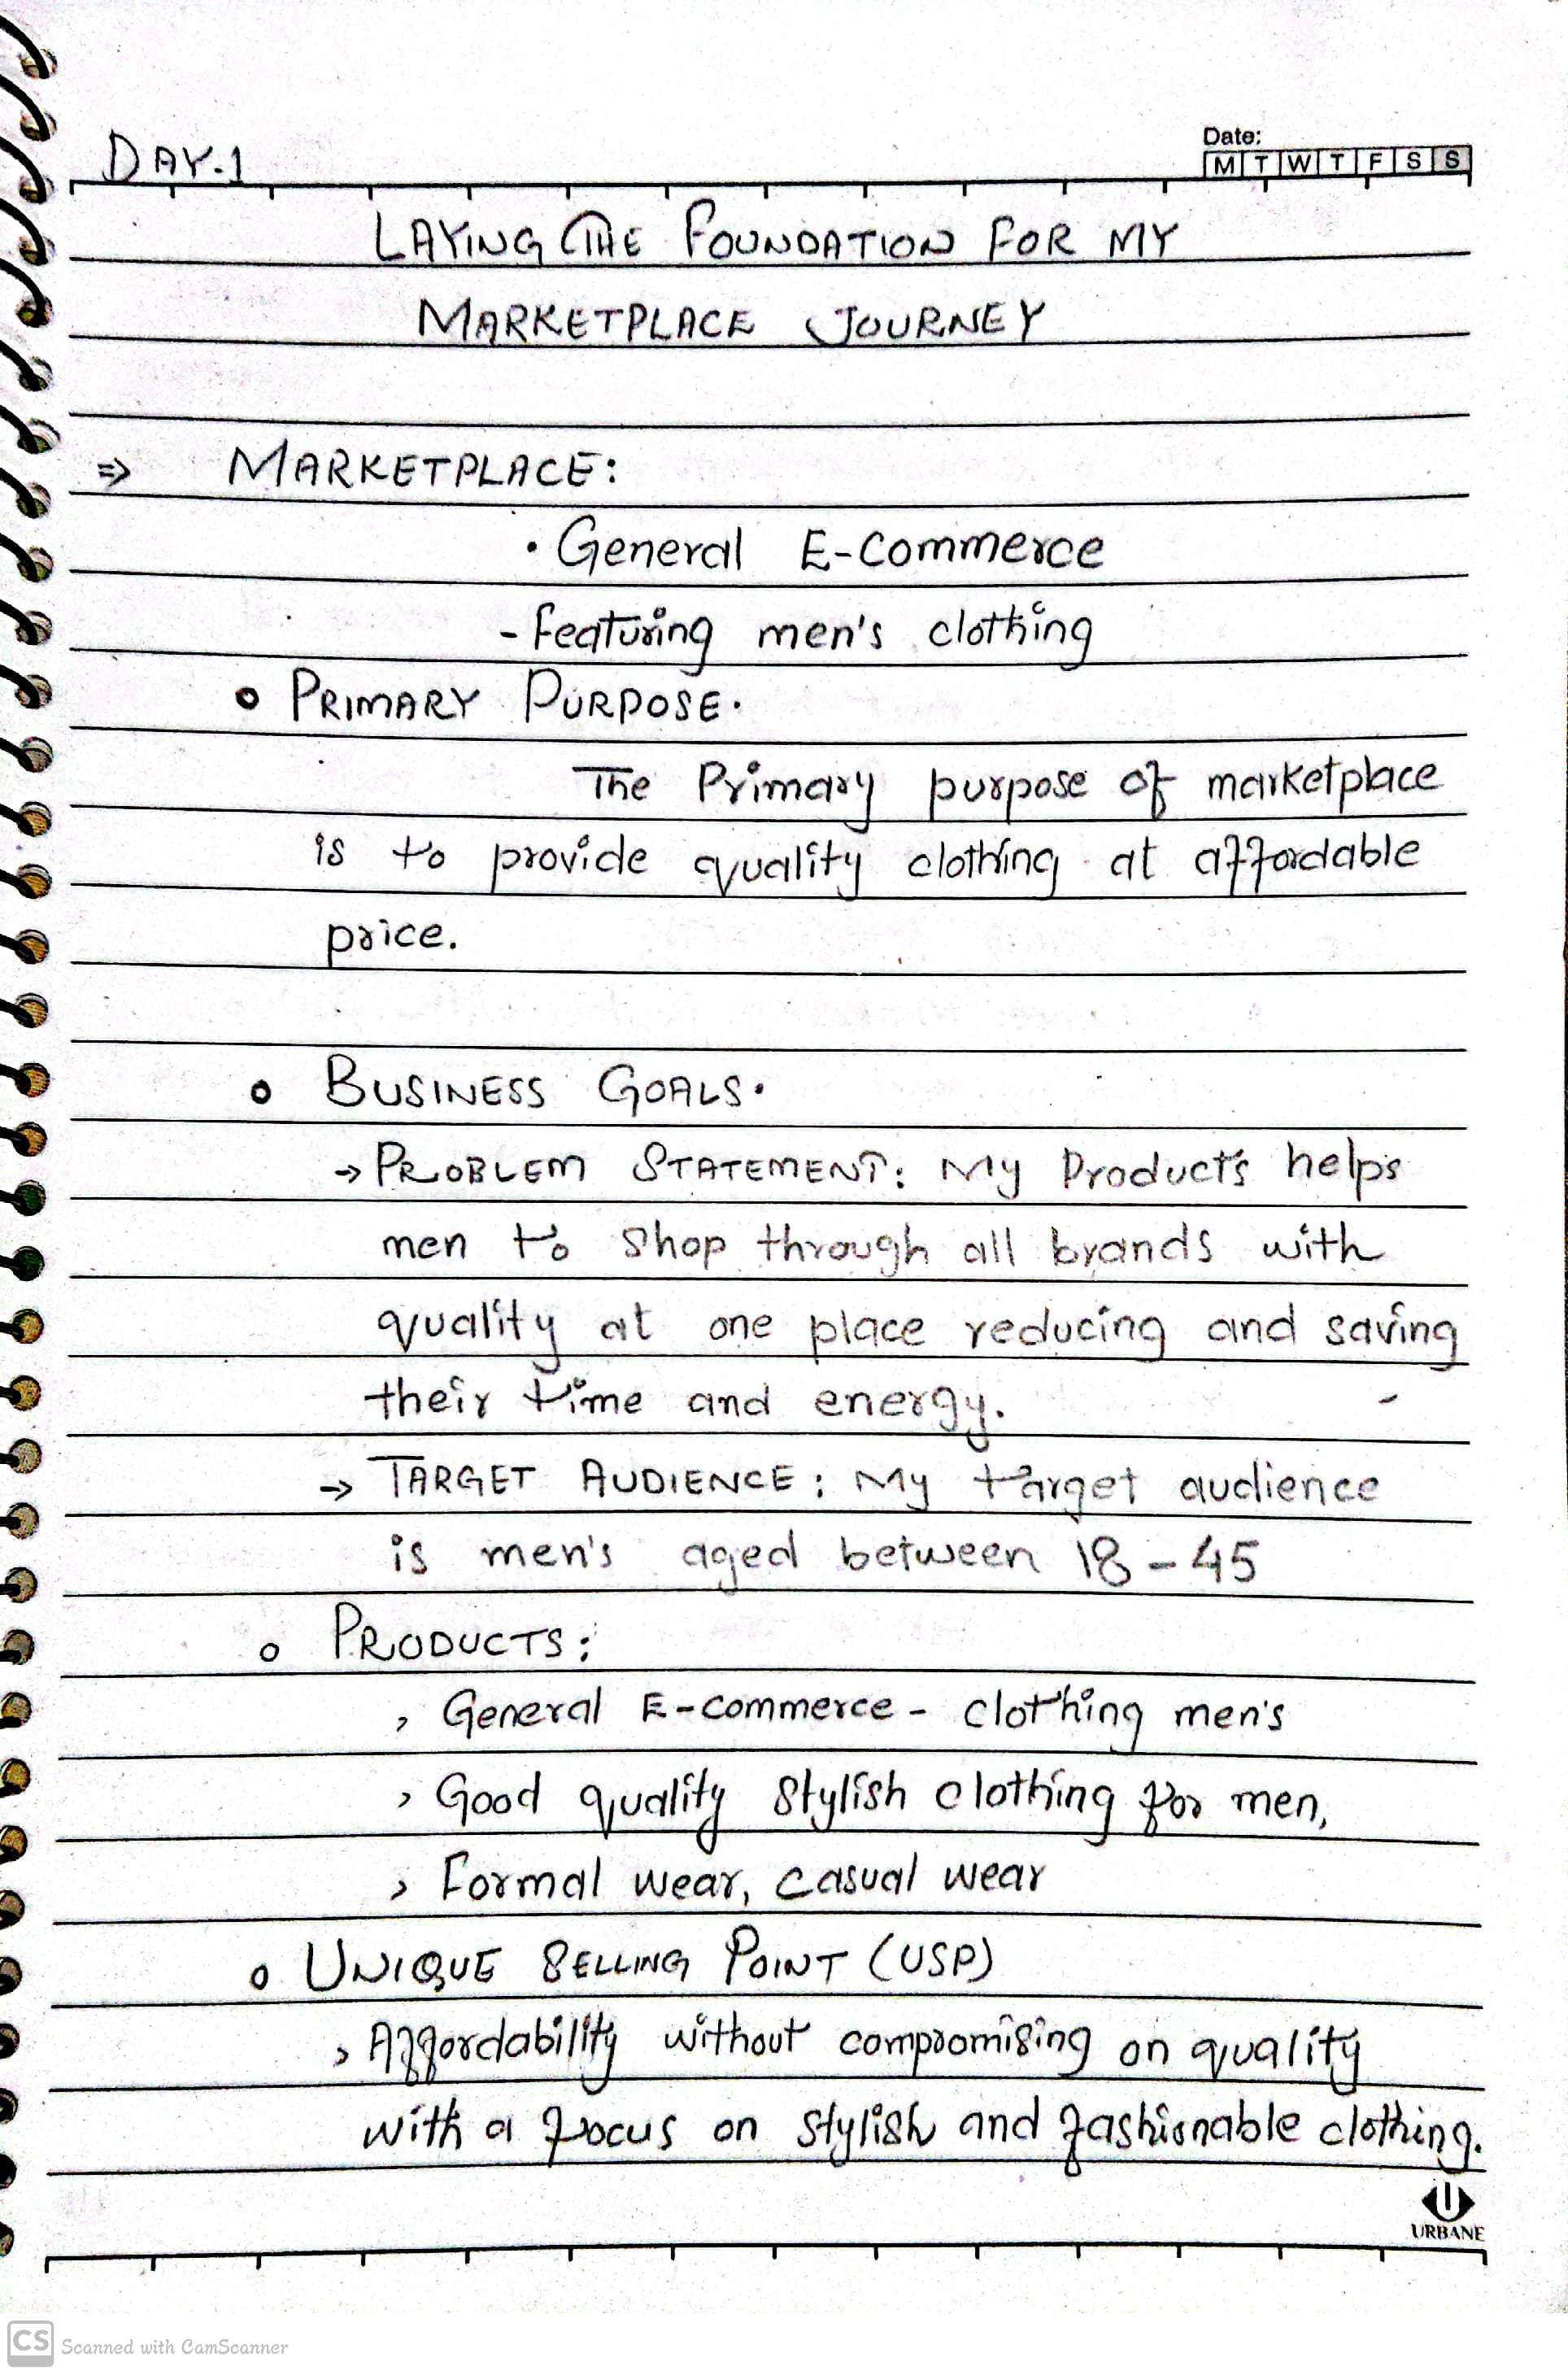 DAY-1
Date:
M T W T F S S
LAYING THE FOUNDATION FOR MY
MARKETPLACE JOURNEY
⇒ MARKETPLACE:
• General E-Commerce
- Featuring men's clothing
o PRIMARY PURPOSE.
The Primary purpose of marketplace
is to provide quality clothing at affordable
price.
o BUSINESS GOALS.
→ PROBLEM STATEMENT: My Products helps
men to shop through all brands with
quality at one place reducing and saving
their time and energy.
→ TARGET AUDIENCE: My target audience
is men's aged between 18-45
o PRODUCTS:
> General E-commerce - clothing men's
> Good quality stylish clothing for men,
> Formal wear, casual wear
o UNIQUE SELLING POINT (USP)
> Affordability without compromising on quality
with a focus on stylish and fashionable clothing.
URBANE
CS Scanned with CamScanner